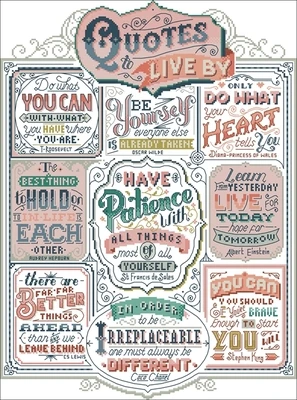 QUOTES
to
LIVE BY
Do what
YOU CAN
WITH WHAT
you HAVE where
YOU ARE
T. Roosevelt
BE
Yourself
everyone else
IS ALREADY TAKEN
OSCAR WILDE
ONLY
DO WHAT
YOUR
HEART
tells You
DIANA-PRINCESS OF WALES
The
BEST THING
TO HOLD ON
IN LIFE
IS
EACH
OTHER
AUDREY HEPBURN
HAVE
Patience
With
ALL THINGS
most of all
YOURSELF
St Francis de Sales
Learn
from YESTERDAY
LIVE FOR
TODAY
hope for
TOMORROW
Albert Einstein
there are
FAR FAR
BETTER
THINGS
AHEAD
than & we
LEAVE BEHIND
CS LEWIS
IN ORDER
to be
IRREPLACEABLE
one must always be
DIFFERENT
Coco Chanel
YOU CAN
YOU SHOULD
if You're BRAVE
enough to START
YOU WILL
Stephen King